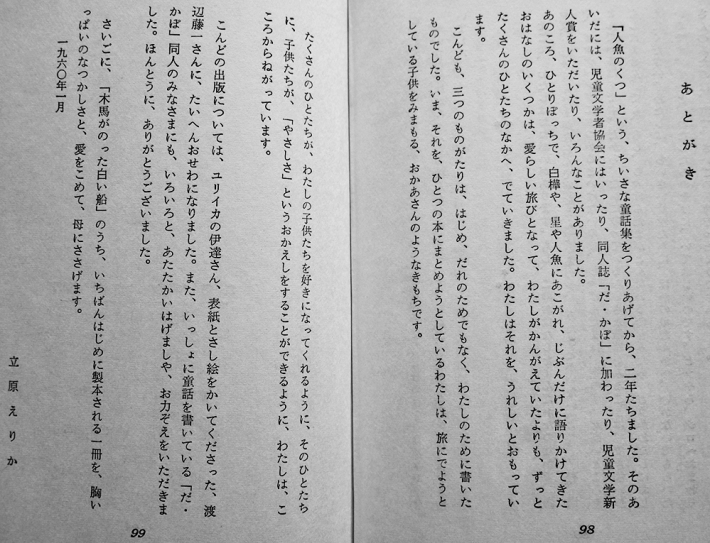 あとがき
「人魚のくつ」という、ちいさな童話集をつくりあげてから、二年たちました。そのあ
いだには、児童文学者協会にはいったり、同人誌「だ・かぽ」に加わったり、児童文学新
人賞をいただいたり、いろんなことがありました。
あのころ、ひとりぼっちで、白樺や、星や人魚にあこがれ、じぶんだけに語りかけてきた
おはなしのいくつかは、愛らしい旅びととなって、わたしがかんがえていたよりも、ずっと
たくさんのひとたちのなかへ、でていきました。わたしはそれを、うれしいとおもってい
ます。
こんども、三つのものがたりは、はじめ、だれのためでもなく、わたしのために書いた
ものでした。いま、それを、ひとつの本にまとめようとしているわたしは、旅にでようと
している子供をみまもる、おかあさんのようなきもちです。
98
たくさんのひとたちが、わたしの子供たちを好きになってくれるように、そのひとたち
に、子供たちが、「やさしさ」というおかえしをすることができるように、わたしは、こ
ころからねがっています。
こんどの出版については、ユリイカの伊達さん、表紙とさし絵をかいてくださった、渡
辺藤一さんに、たいへんおせわになりました。また、いっしょに童話を書いている「だ・
かぽ」同人のみなさまにも、いろいろと、あたたかいはげましや、お力ぞえをいただきま
した。ほんとうに、ありがとうございました。
さいごに、「木馬がのった白い船」のうち、いちばんはじめに製本される一冊を、胸い
っぱいのなつかしさと、愛をこめて、母にささげます。
一九六〇年一月
立原えりか
99